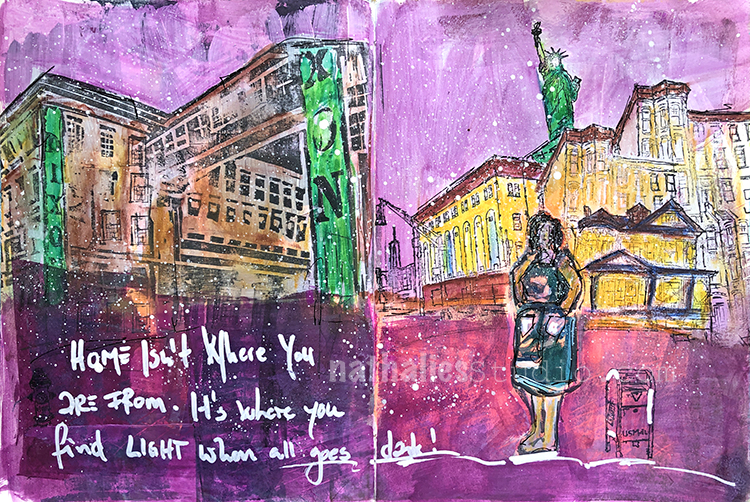 X
O
N
HOME Isn't Where You
ARE From. It's where you
find LIGHT when all goes dark!
nathaliesstudio.com